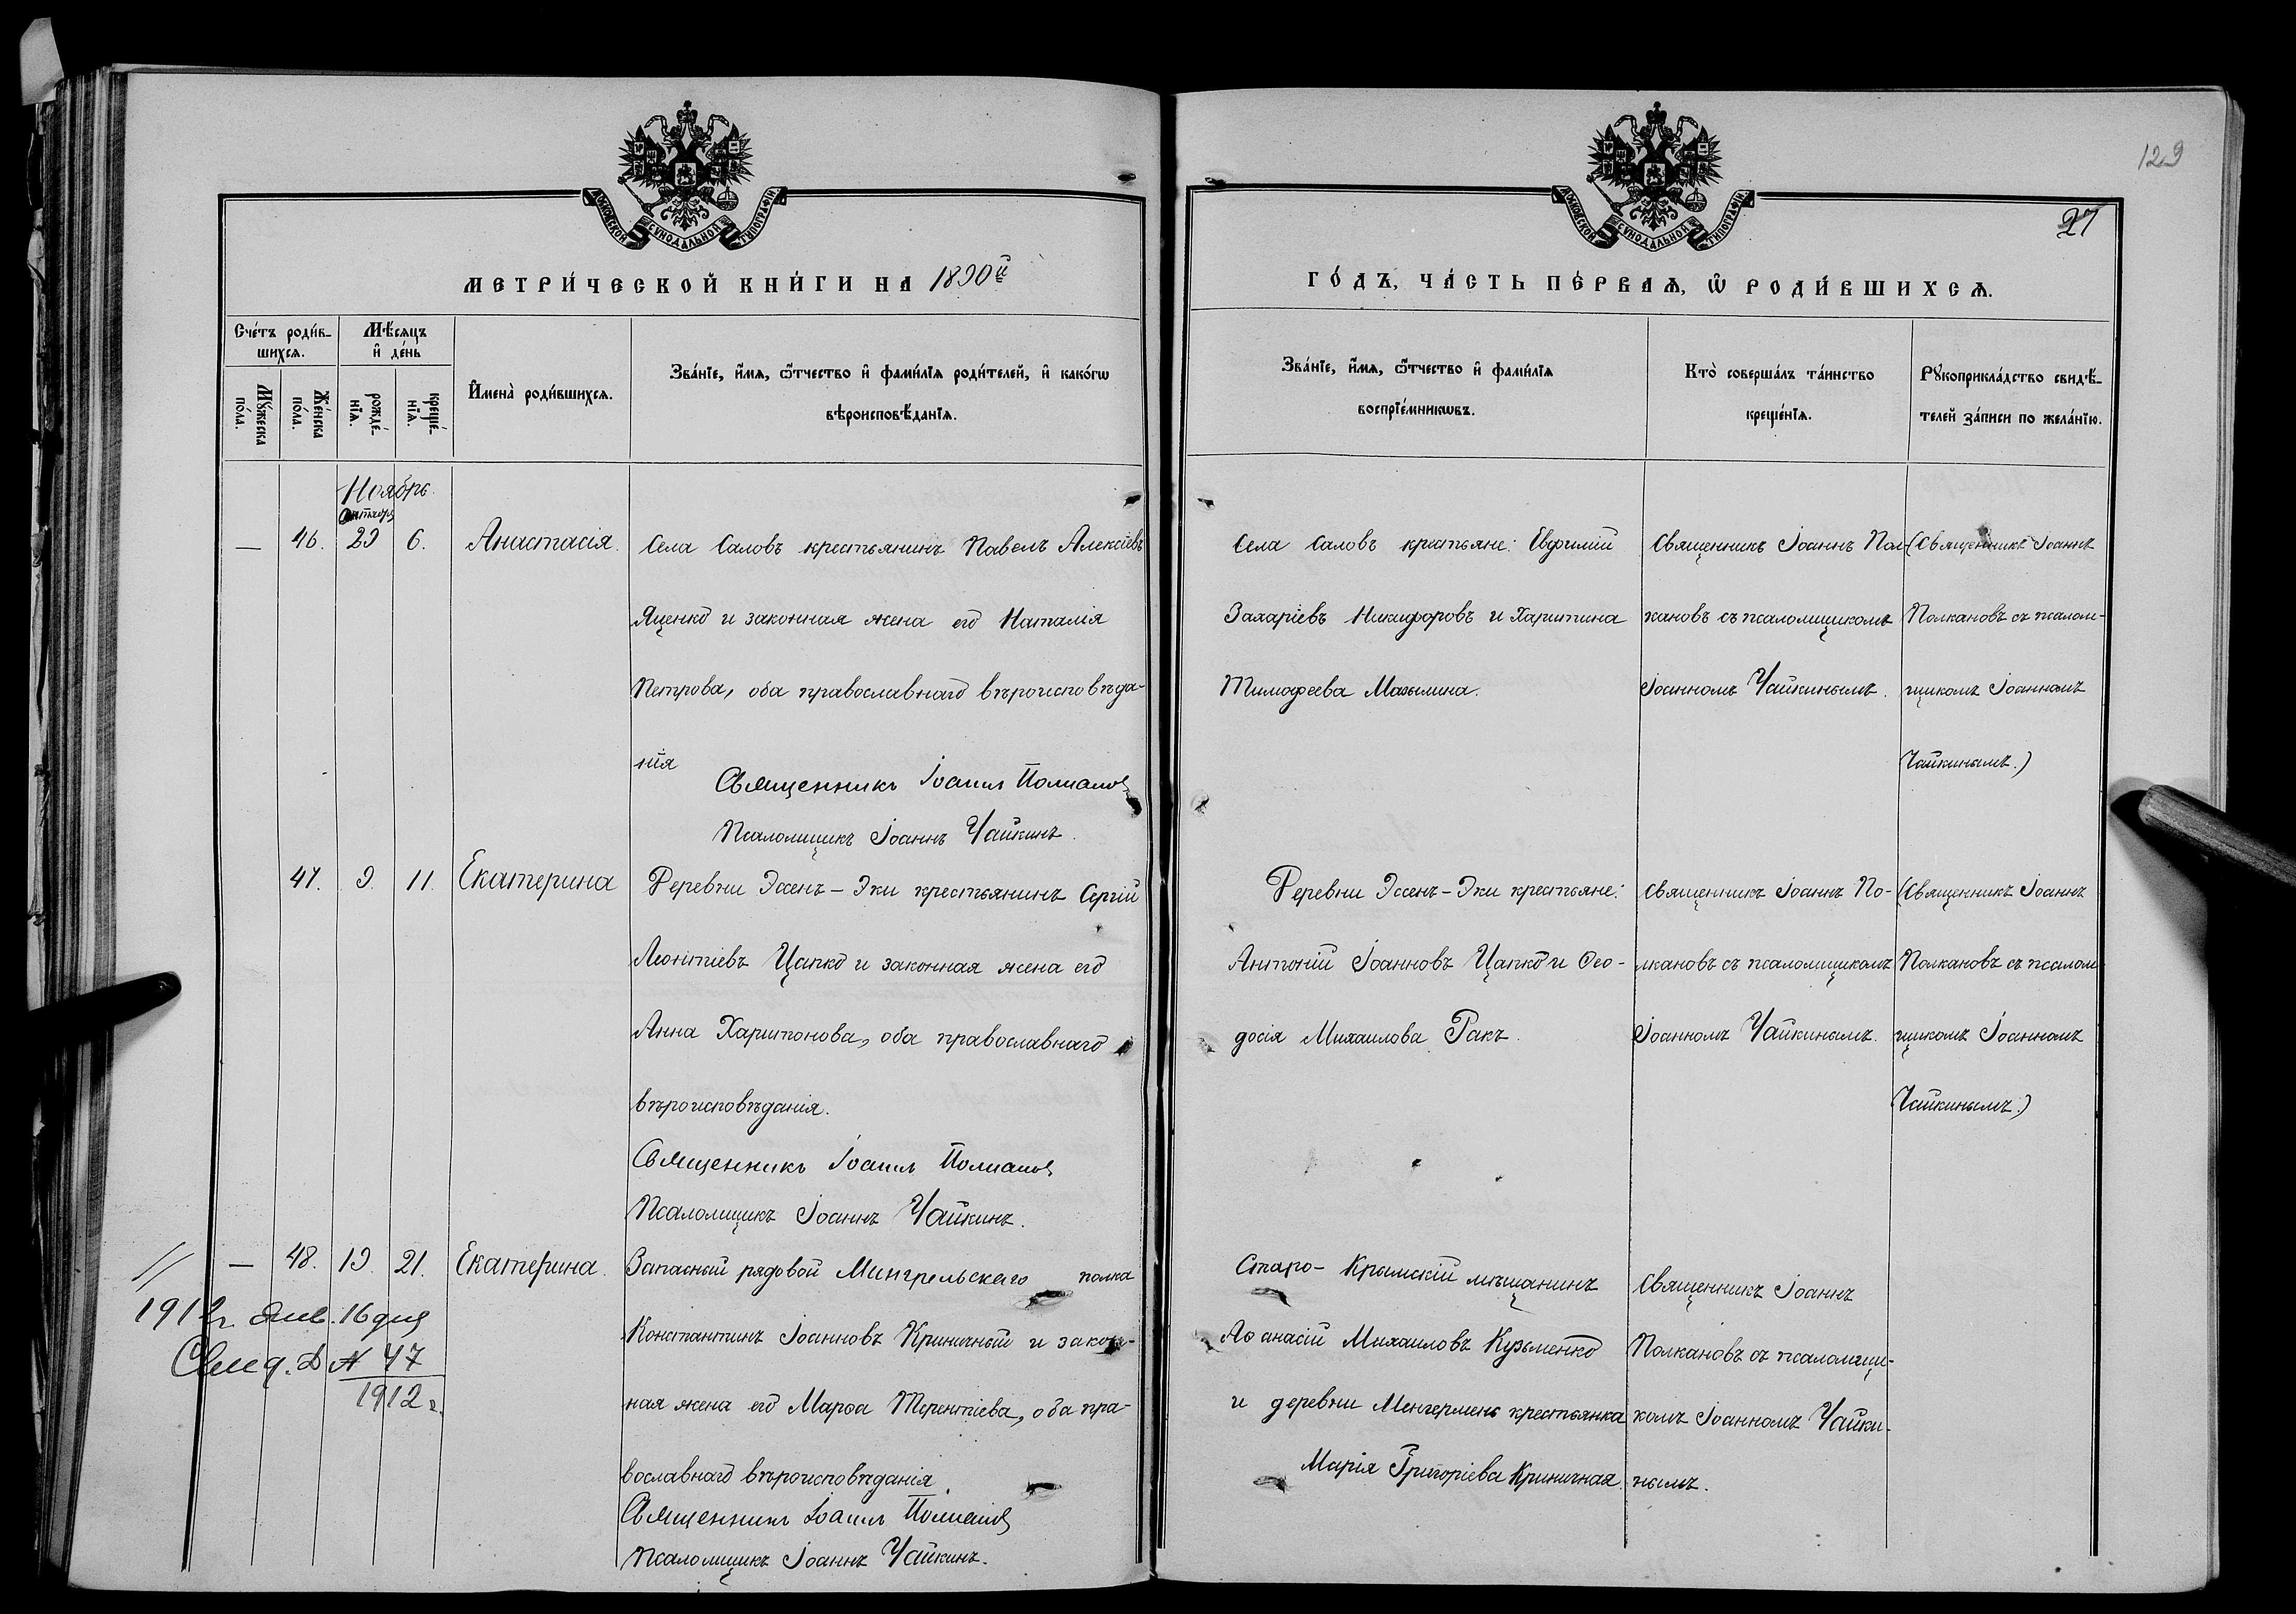 129
27
МОСКОВСКОЙ СѴНОДАЛЬНОЙ ТИПОГРАФІИ
МОСКОВСКОЙ СѴНОДАЛЬНОЙ ТИПОГРАФІИ
МЕТРИ́ЧЕСКОЙ КНИ́ГИ НА 1890й
ГО́ДЪ, ЧА́СТЬ ПЕ́РВАѦ, Ѡ҆ РОДИ́ВШИХСѦ.
Сче́тъ роди́в-
шихсѧ.
Мѣ́сѧцъ
и҆ де́нь
Мꙋ́жеска по́ла.
Же́нска по́ла.
рожде́-нїѧ.
креще́-нїѧ.
И҆мена̀ роди́вшихсѧ.
Зва́нїе, и҆́мѧ, ѻ҆́тчество и҆ фами́лїѧ роди́телей, и҆ како́гѡ
вѣроисповѣ́данїѧ.
Зва́нїе, и҆́мѧ, ѻ҆́тчество и҆ фами́лїѧ
воспрїе́мникѡвъ.
Кто̀ соверша́лъ та́инство
креще́нїѧ.
Рꙋкоприкла́дство свидѣ́-
телей за́писи по жела́нїю.
Ноябрь.
Октября
— 46. 29 6. Анастасія. Села Саловъ крестьянинъ Павелъ Алексіевъ
Яценко и законная жена его Наталія
Петрова, оба православнаго вѣроисповѣда-
нія
Священникъ Іоаннъ Полкановъ
Псаломщикъ Іоаннъ Чайкинъ.
Села Саловъ крестьяне: Евфимій
Захаріевъ Никифоровъ и Харитина
Тимофеева
Священникъ Іоаннъ Пол-
кановъ съ псаломщикомъ
Іоанномъ Чайкинымъ.
(Священникъ Іоаннъ
Полкановъ съ псалом-
щикомъ Іоанномъ
Чайкинымъ.)
47. 9. 11. Екатерина Деревни Эссенъ-Эки крестьянинъ Сергій
Леонтіевъ Цапко и законная жена его
Анна Харитонова, оба православнаго
вѣроисповѣданія.
Священникъ Іоаннъ Полкановъ
Псаломщикъ Іоаннъ Чайкинъ.
Деревни Эссенъ-Эки крестьяне:
Антоній Іоанновъ Цапко и Ѳео-
досія Михаилова Ракъ.
Священникъ Іоаннъ По-
лкановъ съ псаломщикомъ
Іоанномъ Чайкинымъ.
(Священникъ Іоаннъ
Полкановъ съ псалом
щикомъ Іоанномъ
Чайкинымъ.)
— 48. 19. 21. Екатерина. Запасный рядовой Мингрельскаго полка
Константинъ Іоанновъ Криничный и закон-
ная жена его Марѳа Терентіева, оба пра-
вославнаго вѣроисповѣданія.
Священникъ Іоаннъ Полкановъ
Псаломщикъ Іоаннъ Чайкинъ.
Старо-Крымскій мѣщанинъ
Аѳанасій Михаиловъ Кузьменко
и деревни Менгерменъ крестьянка
Марія Григоріева Криничная.
Священникъ Іоаннъ
Полкановъ съ псаломщи-
комъ Іоанномъ Чайки-
нымъ.
1912г. Янв. 16 дня
Свид. № 47
1912 г.